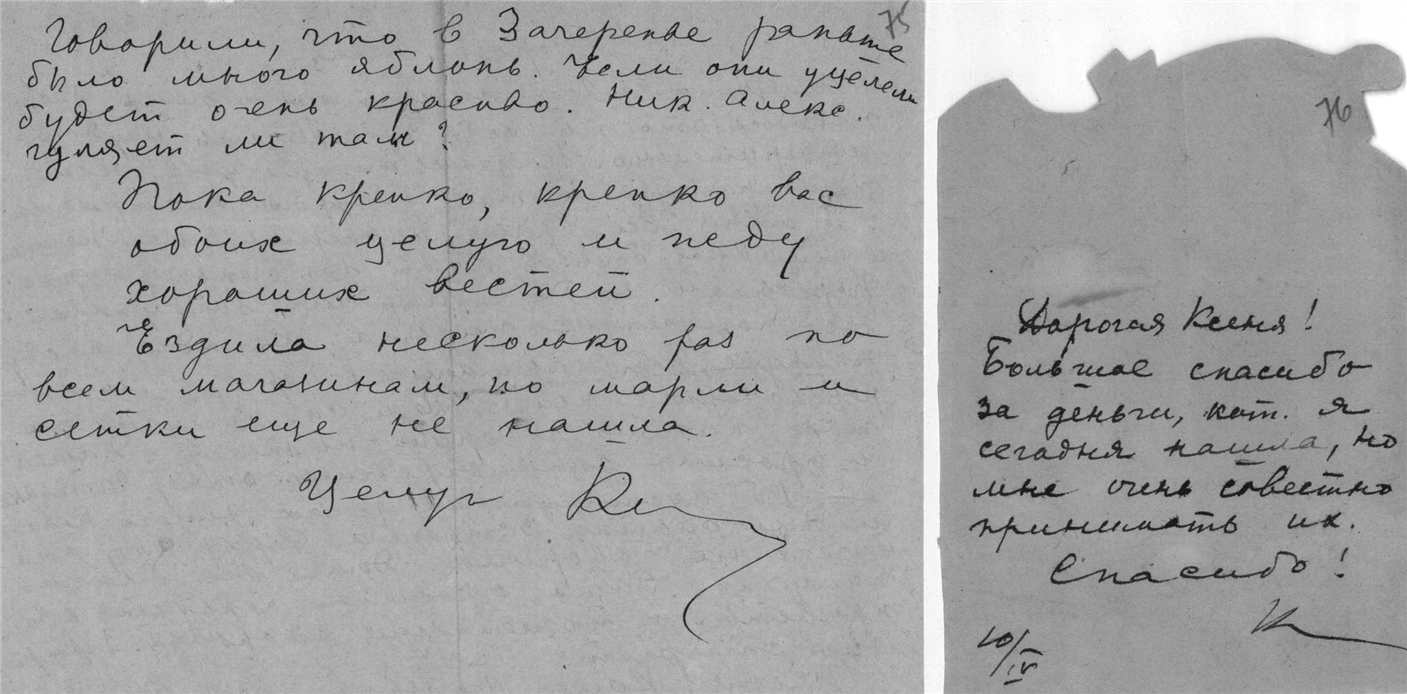 75
Говорили, что в Зачеренье раньше
было много яблонь. Если они уцелели
будет очень красиво. Ник. Алекс.
гуляет ли там?
Пока крепко, крепко вас
обоих целую и жду
хороших вестей.
Ездила несколько раз по
всем магазинам, но марли и
сетки еще не нашла.
Целую К
76
Дорогая Ксеня!
Большое спасибо
за деньги, кот. я
сегодня нашла, но
мне очень совестно
принимать их.
Спасибо!
К
10/IV